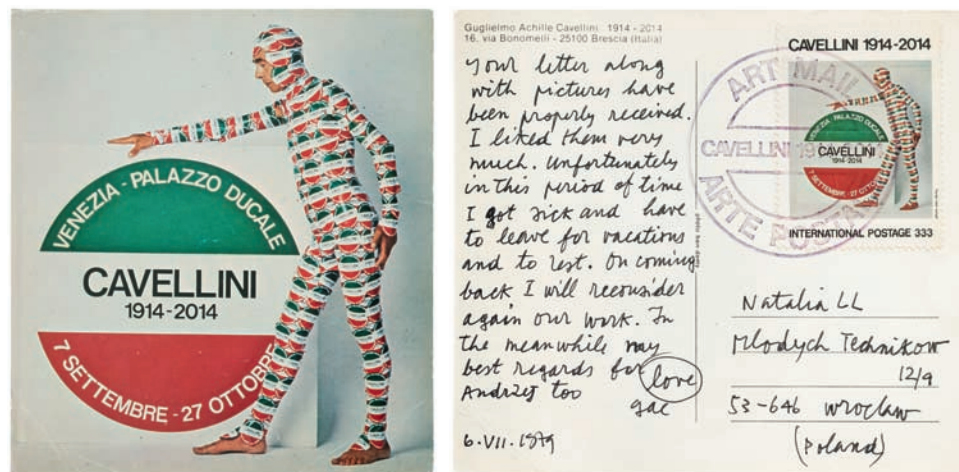 VENEZIA - PALAZZO DUCALE
CAVELLINI
1914-2014
7 SETTEMBRE - 27 OTTOBRE
Guglielmo Achille Cavellini 1914 - 2014
16, via Bonomelli - 25100 Brescia (Italia)
Your letter along
with pictures have
been properly received.
I liked them very
much. Unfortunately
in this period of time
I got sick and have
to leave for vacations
and to rest. On coming
back I will reconsider
again our work. In
the meanwhile my
best regards for
Andrzej too
love
gac
6.VII.1979
CAVELLINI 1914-2014
VENEZIA - PALAZZO DUCALE
CAVELLINI
1914-2014
7 SETTEMBRE - 27 OTTOBRE
INTERNATIONAL POSTAGE 333
ART MAIL
CAVELLINI 1914-2014
ARTE POSTALE
Natalia LL
Mlodych Technikow
12/9
53-646 Wroclaw
(Poland)